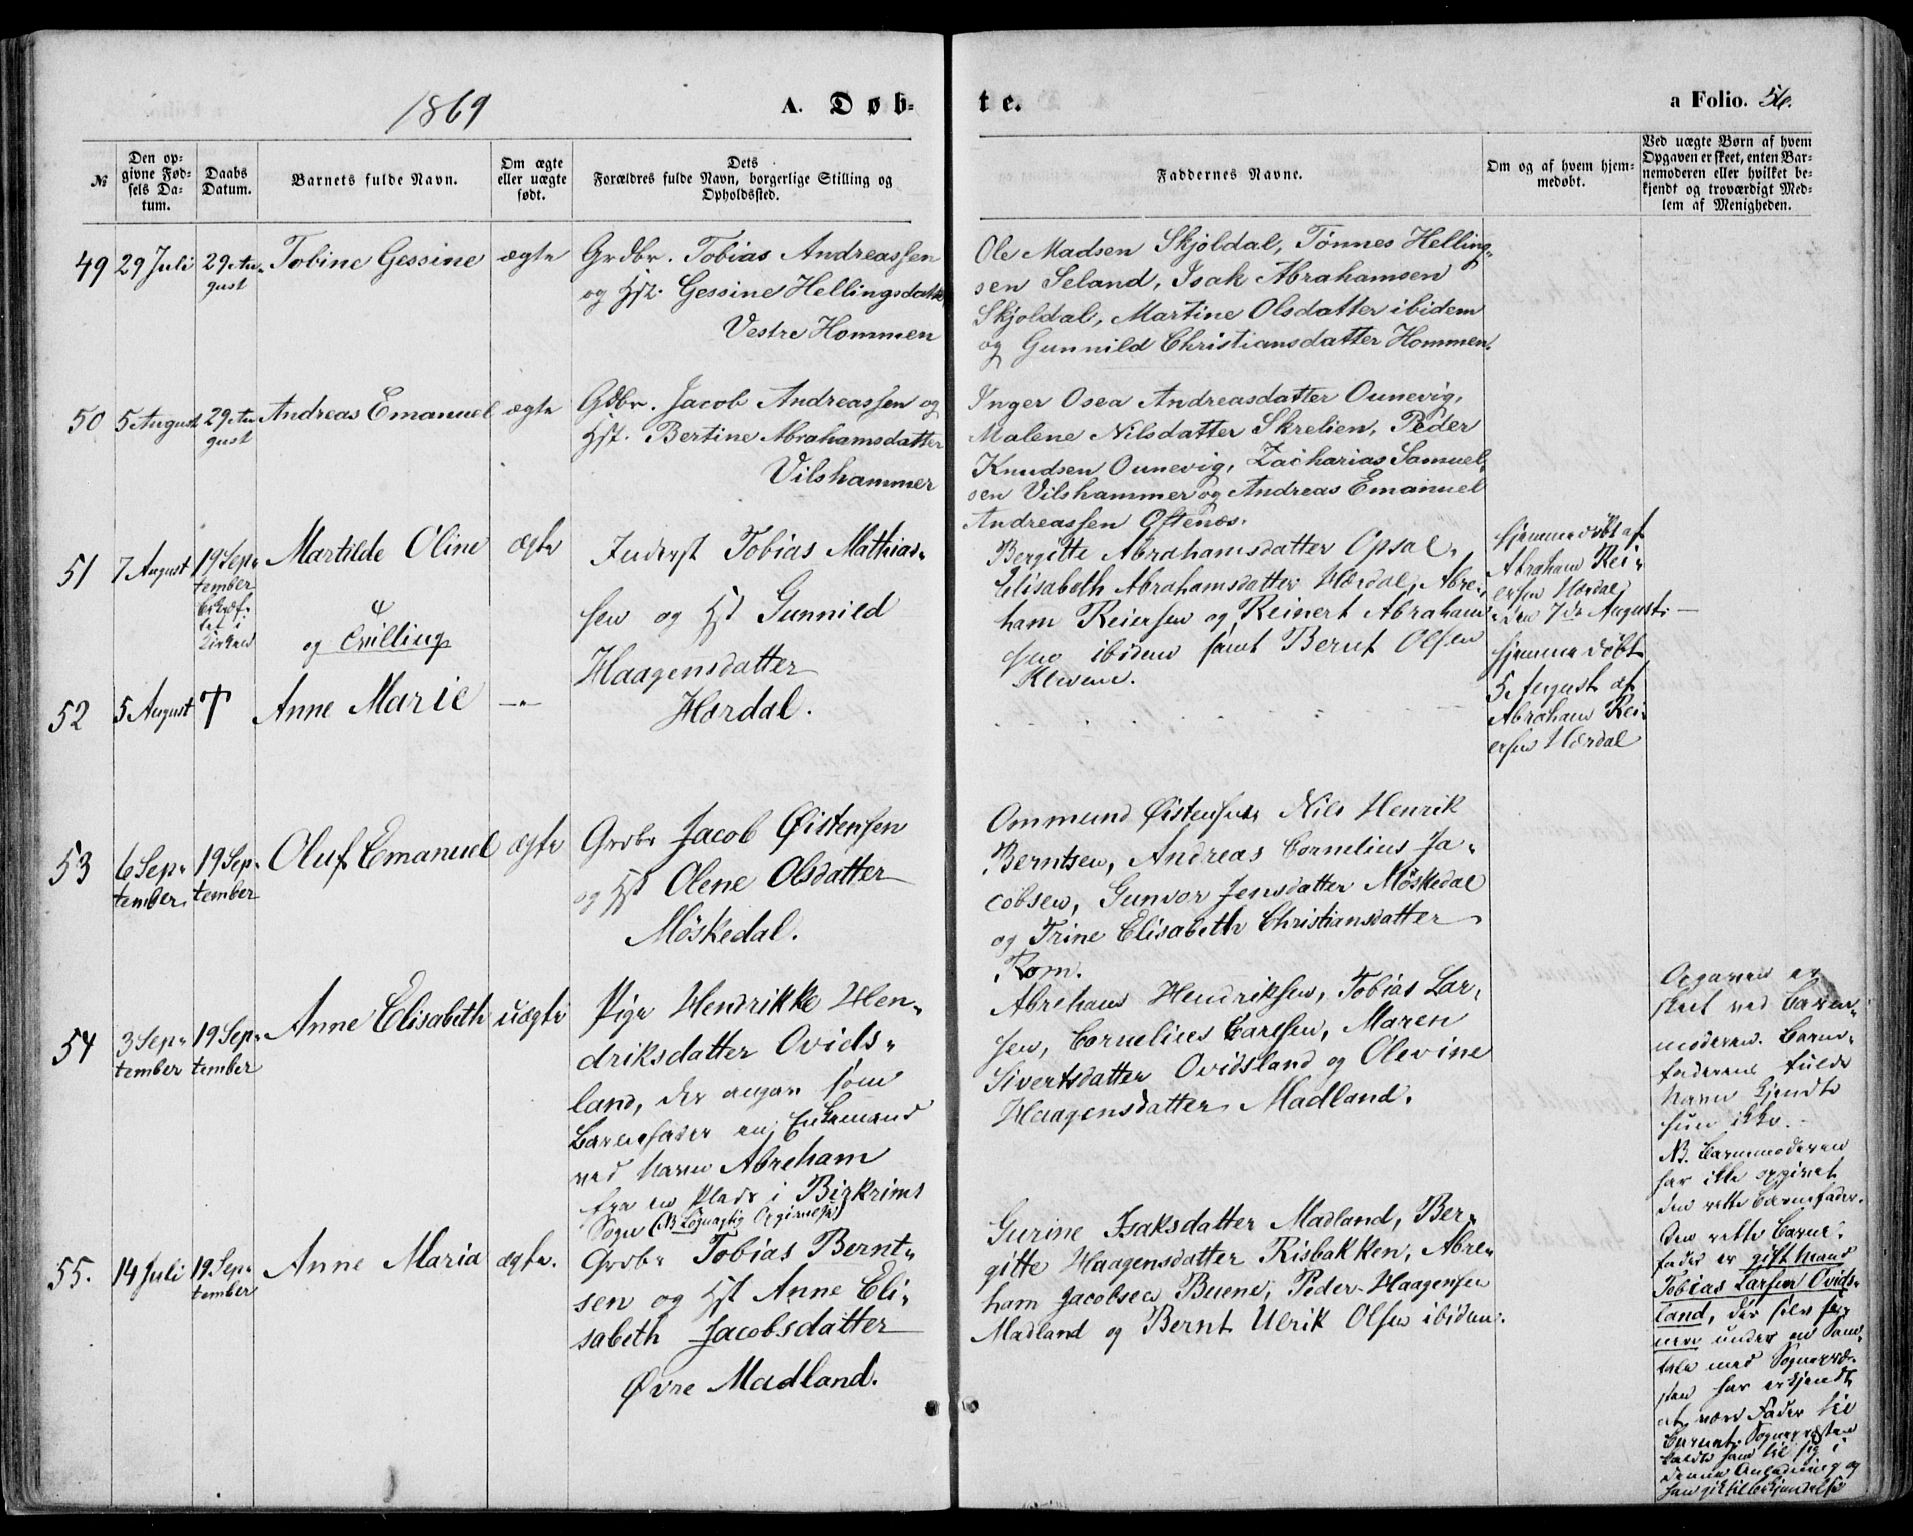 1869
A. Døb-
te.
a Folio. 56.
№
Den op-
givne Fød-
sels Da-
tum.
Daabs
Datum.
Barnets fulde Navn.
Om ægte
eller uægte
født.
Dets
Forældres fulde Navn, borgerlige Stilling og
Opholdssted.
Faddernes Navne.
Om og af hvem hjem-
medøbt.
Ved uægte Børn af hvem
Opgaven er skeet, enten Bar-
nemoderen eller hvilket be-
kjendt og troværdigt Med-
lem af Menigheden.
49
29 Juli
29 Au-
gust
Tobine Gessine
ægte
Grdbr. Tobias Andreassen
og Hst. Gessine Hellingsdatter
Vestre Hommen
Ole Madsen Skjoldal, Tønnes Helling-
sen Seland, Isak Abrahamsen
Skjoldal, Martine Olsdatter ibidem
og Gunnild Christiansdatter Hommen.
50
5 August
29 Au-
gust
Andreas Emanuel
ægte
Gdbr. Jacob Andreassen og
Hst. Bertine Abrahamsdatter
Vilshammer
Inger Osea Andreasdatter Ounevig,
Malene Nilsdatter Skrelien, Peder
Knudsen Ounevig, Zacharias Samuel-
sen Vilshammer og Andreas Emanuel
Andreassen Oftenæs.
51
7 August
19 Sep-
tember
bekræf-
tet i
Kirken
Martilde Oline
og Tvilling
ægte
Inderst Tobias Mathias-
sen og Hst Gunnild
Haagensdatter
Hærdal.
Bergitte Abrahamsdatter Opsal,
Elisabeth Abrahamsdatter Hærdal, Abre-
ham Reiersen og Reinert Abraham
sen ibidem samt Bernt Olsen
Kleven.
Hjemmedøbt af
Abraham Rei-
ersen Hærdal
den 7de August.
52
5 August
†
Anne Marie
—"—
Hjemmedøbt
5 August af
Abraham Rei-
ersen Hærdal
53
6 Sep-
tember
19 Sep-
tember
Oluf Emanuel
ægte
Grdbr Jacob Øistensen
og Hst Olene Olsdatter
Møskedal.
Ommund Øistensen, Nils Henrik
Berntsen, Andreas Cornelius Ja-
cobsen, Gunvor Jensdatter Møskedal
og Trine Elisabeth Christiansdatter
Rom.
54
3 Sep-
tember
19 Sep-
tember
Anne Elisabeth
uægte
Pige Hendrikke Hen-
driksdatter Ovids-
land, der angav som
Barnefader en Enkemand
ved Navn Abreham
fra en Plads i Birkrims
Sogn (NB Løgnagtig Opgivelse)
Abreham Hendriksen, Tobias Lar-
sen, Cornelius Carlsen, Maren
Sivertsdatter Ovidsland og Olevine
Haagensdatter Madland.
Opgaven er
skeet ved Barne-
moderen. Barne-
faderens fulde
Navn kjendte
hun ikke.
NB. Barnemoderen
har ikke opgivet
den rette Barnefader.
Den rette Barne-
fader er gift Mand
Tobias Larsen Ovids-
land, der selv sen-
nere under en Sam-
tale med Sognepræ-
sten har erkjendt
at være Fader til
Barnet. Sognepræsten
kaldte ham til sig i
denne Anledning og
han gik til Bekjendelse
55.
14 Juli
19 Sep-
tember
Anne Maria
ægte.
Grdbr Tobias Bernt-
sen og Hst Anne Eli-
sabeth Jacobsdatter
Øvre Madland.
Gurine Isaksdatter Madland, Ber-
gitte Haagensdatter Risbakken, Abre-
ham Jacobsen Buene, Peder Haagensen
Madland og Bernt Ulrik Olsen ibidem.